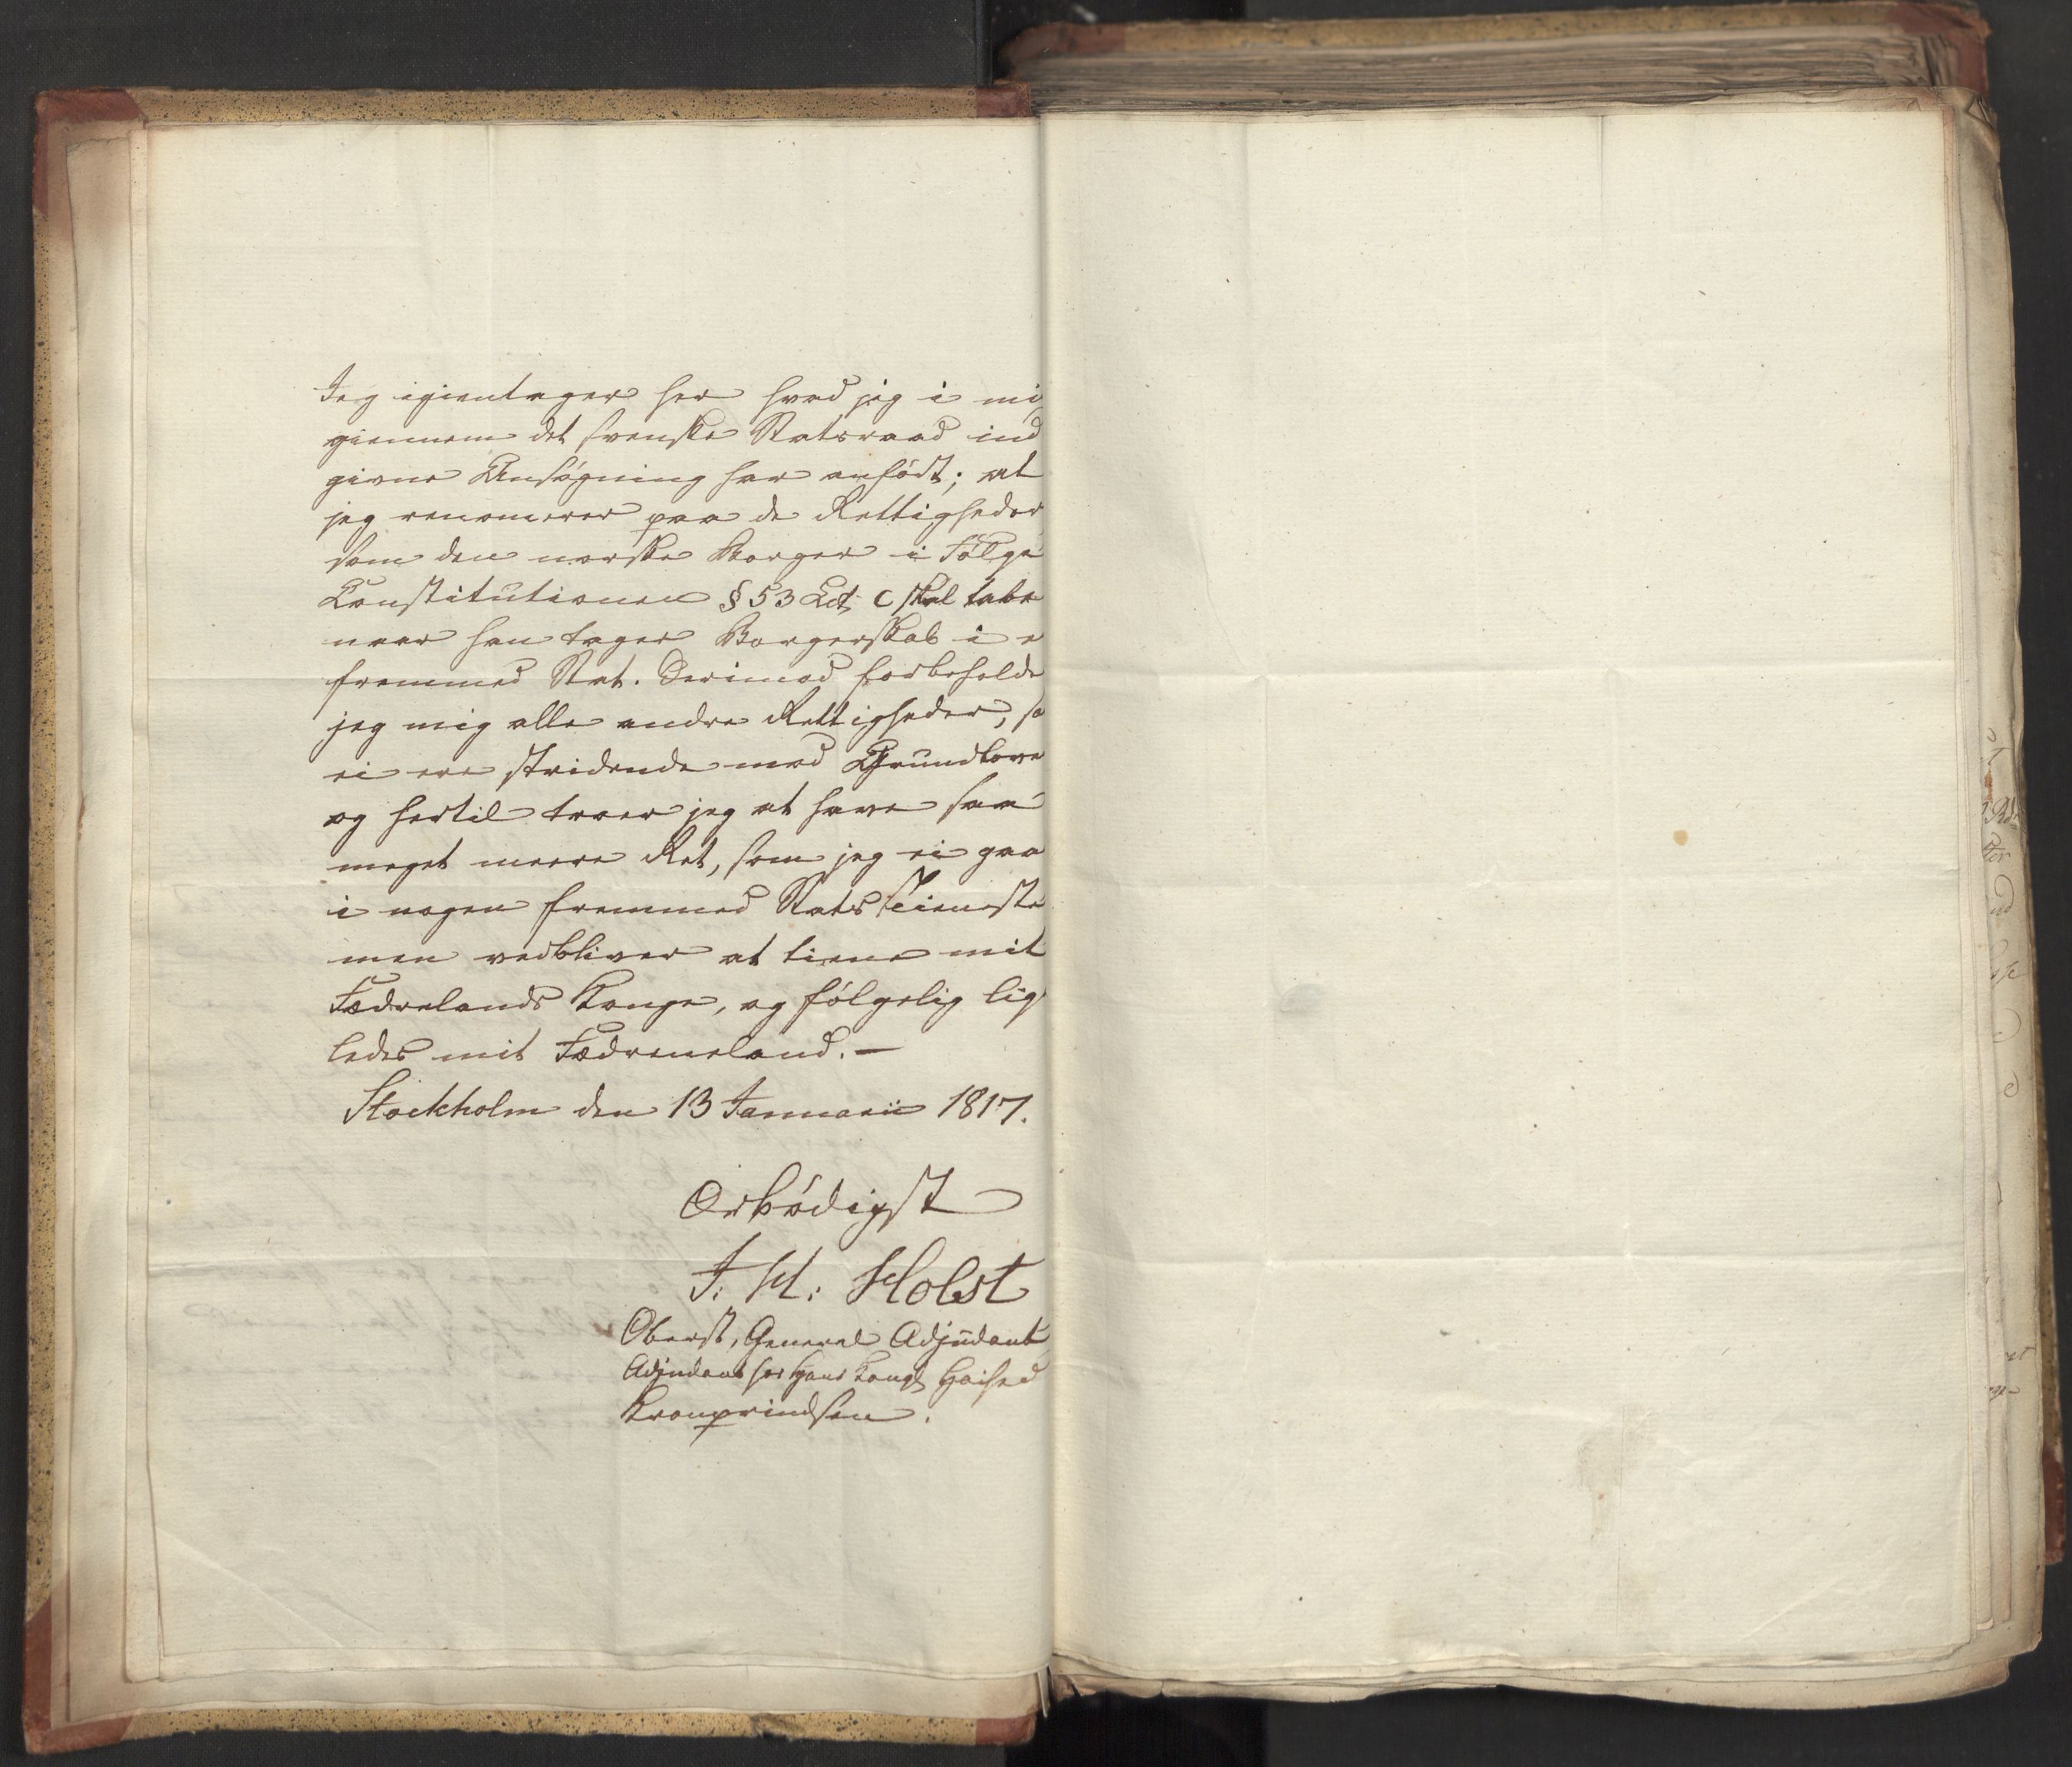 Jeg igientager her hvad jeg i mi
giennem det svenske Statsraad ind
givne Ansøgning har anført; at
jeg renoncerer paa de Rettigheder
som den norske Borger i Følge
Constitutionen § 53 Lit C skal tabe
naar han tager Borgerskab i e
fremmed Stat. Derimod forbeholde
jeg mig alle andre Rettigheder, so
ei ere stridende mod Grundlove
og hertil troer jeg at have saa
meget meere Ret, som jeg ei gaa
i nogen fremmed Stats Tieneste
men vedbliver at tiene mit
Fædrelands Konge, og følgelig lig
ledes mit Fædreneland. —
Stockholm den 13 Januarii 1817.
Ærbødigst
J: H: Holst
Oberst, General Adjudant
Adjudant hos Hans Kongl Høihed
Kronprindsen.